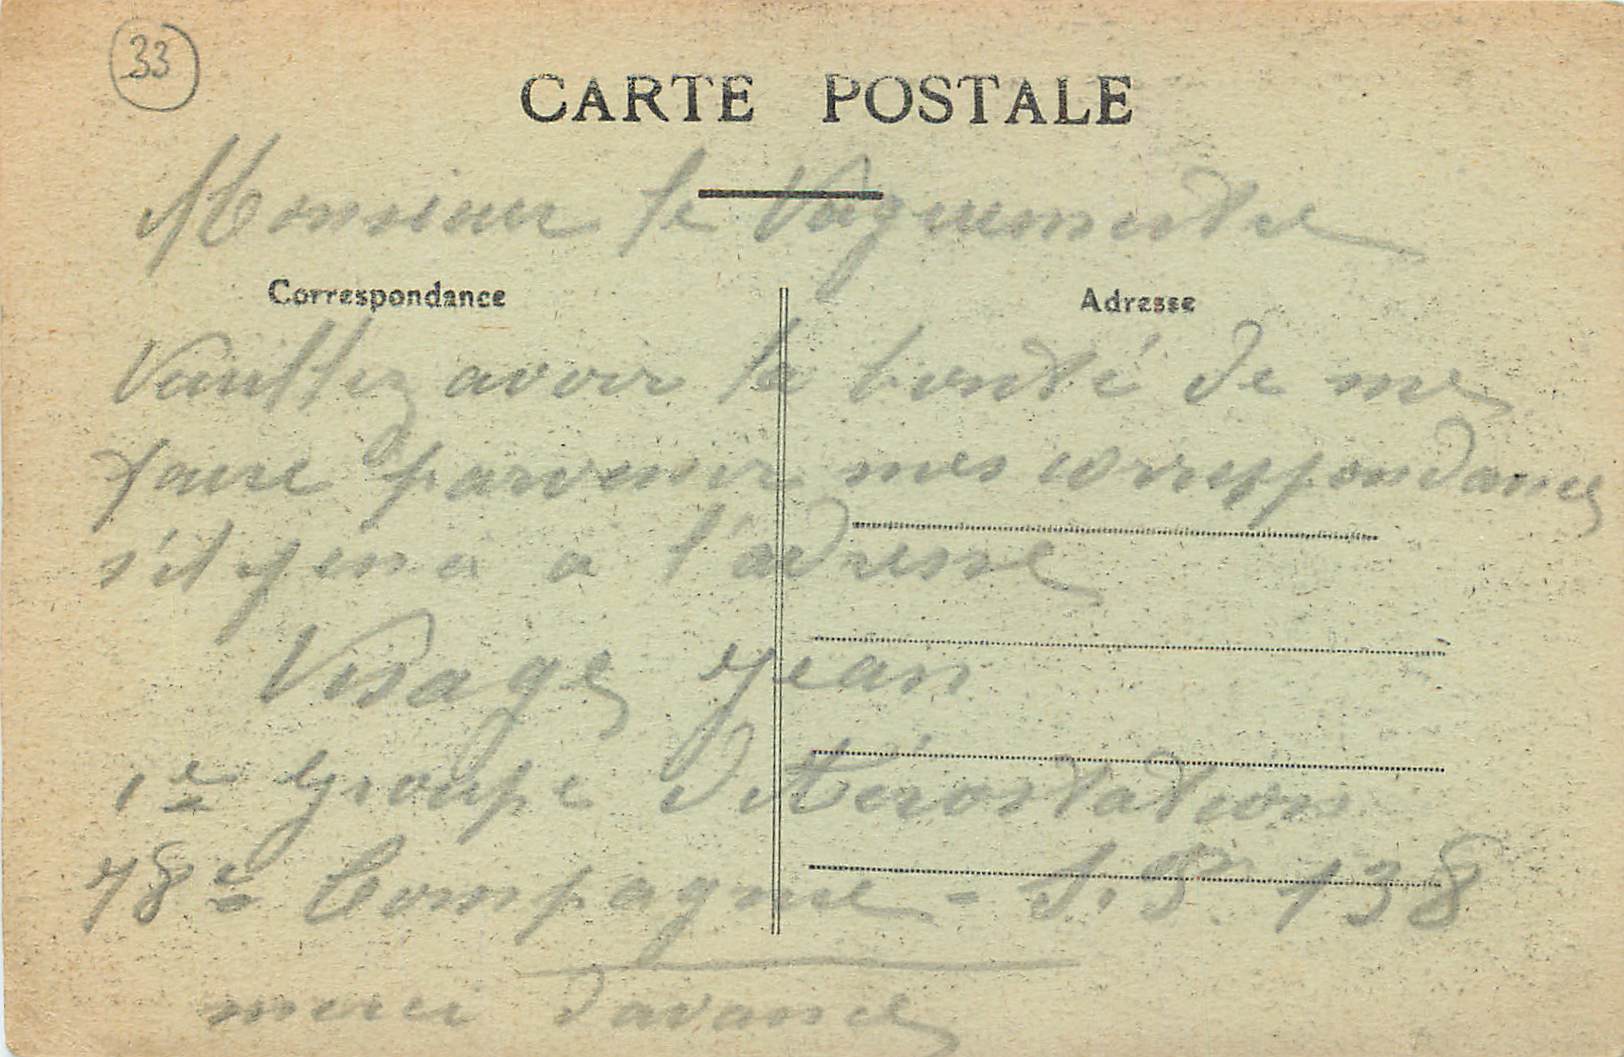 33
CARTE POSTALE
Monsieur le Vaguemestre
Correspondance
Adresse
Veuillez avoir la bonté de me
faire parvenir mes correspondances
à l'adresse
Visage Jean
1er Groupe d'Aérostation
78e Compagnie - S.P. 138
merci d'avance